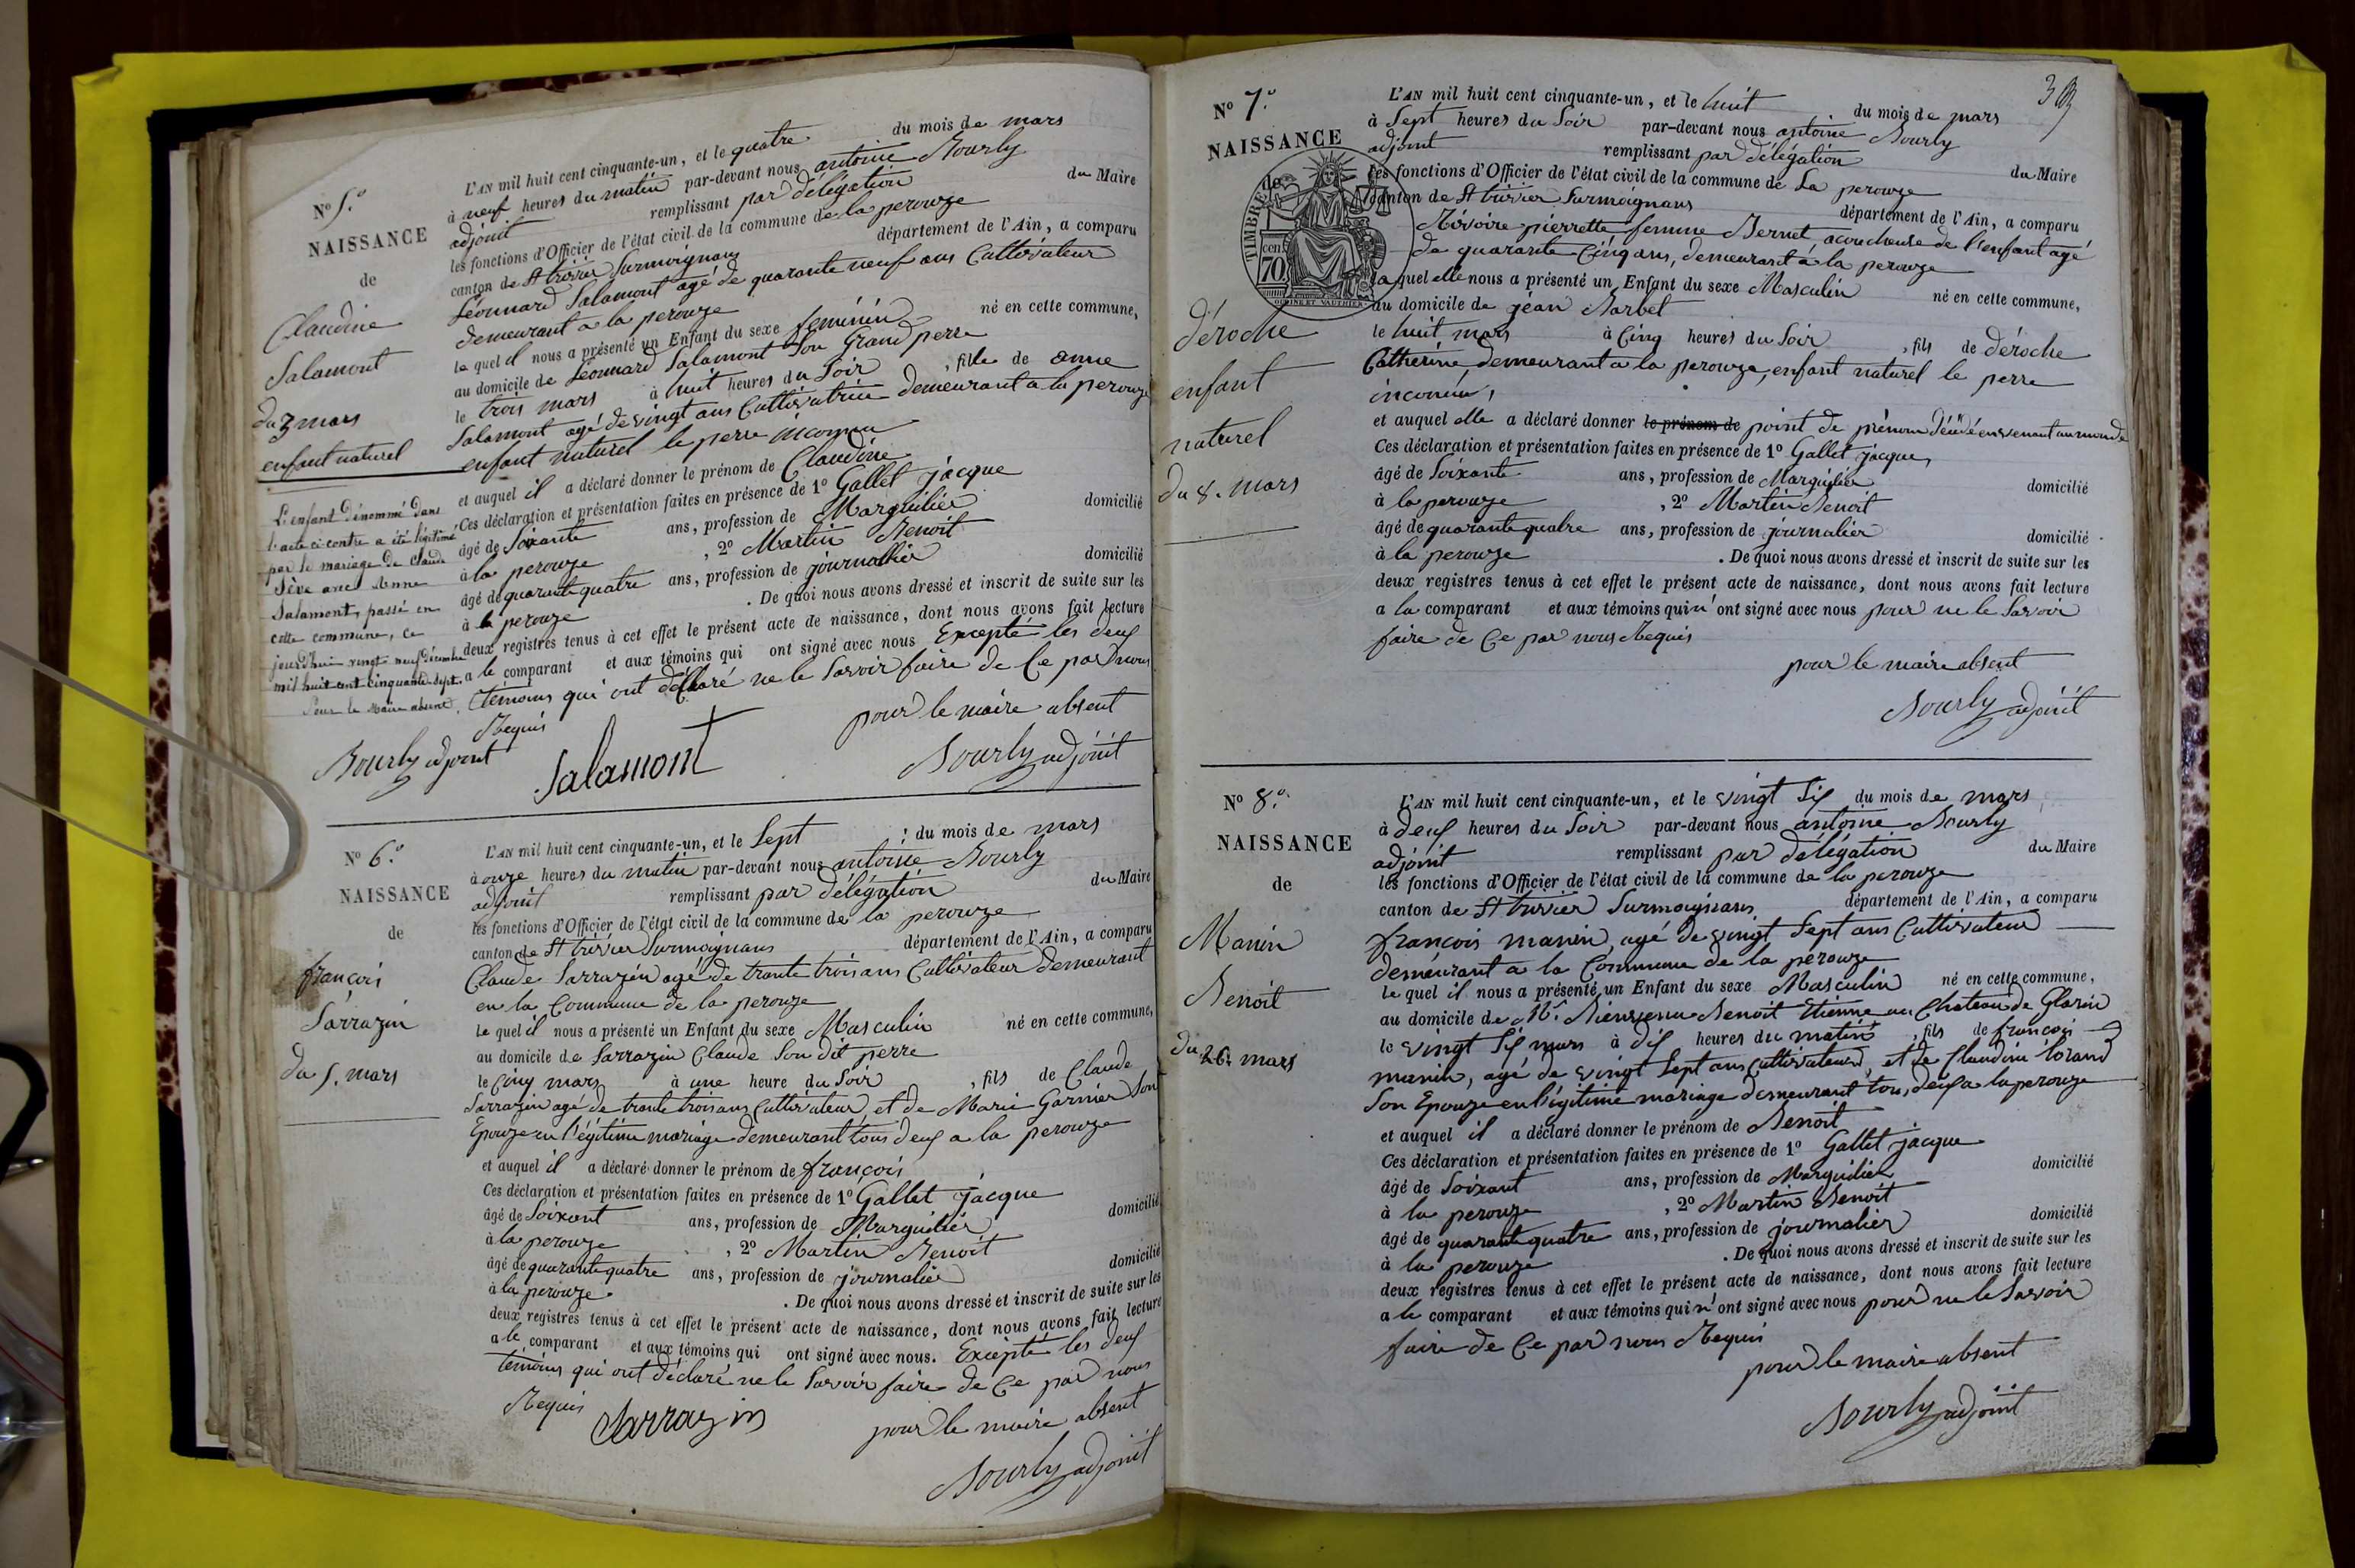 N° 5.°
NAISSANCE
de
Claudine
Salamont
du 3 mars
enfant naturel
L'enfant dénommé dans
l'acte ci-contre a été légitimé
par le mariage de Claude
avec Anne
Salamont, passé en
cette commune, ce
jourd'hui vingt neuf décembre
mil huit cent cinquante sept.
Pour le Maire absent,
Bourly adjoint
L'AN mil huit cent cinquante-un, et le quatre du mois de mars
à neuf heures du matin par-devant nous antoine Bourly
adjoint remplissant par délégation du Maire
les fonctions d'Officier de l'état civil de la commune de la perouze
canton de St trivier Surmoignans département de l'Ain, a comparu
Léonnard Salamont agé de quarante neuf ans Cultivateur
demeurant a la perouze
le quel il nous a présenté un Enfant du sexe feminin né en cette commune,
au domicile de Léonnard Salamont Son Grand perre
le trois mars à huit heures du Soir , fille de anne
Salamont agé de vingt ans Cultivatrice demeurant a la perouze
enfant naturel le perre inconnu
et auquel il a déclaré donner le prénom de Claudine
Ces déclaration et présentation faites en présence de 1° Gallet jacque
âgé de Soixante ans, profession de Marguilier domicilié
à la perouze , 2° Martin Benoit
âgé de quarante quatre ans, profession de journallier domicilié
à la perouze . De quoi nous avons dressé et inscrit de suite sur les
deux registres tenus à cet effet le présent acte de naissance, dont nous avons fait lecture
a le comparant et aux témoins qui ont signé avec nous Excepté les deux
témoins qui ont déclaré ne le Savoir faire de Ce par nous
Requis
pour le maire absent
Salamont
Bourly adjoint
N° 6.°
NAISSANCE
de
françois
Sarrazin
du 5. mars
L'AN mil huit cent cinquante-un, et le Sept du mois de mars
à onze heures du matin par-devant nous antoine Bourly
adjoint remplissant par délégation du Maire
les fonctions d'Officier de l'état civil de la commune de la perouze
canton de St trivier Surmoignans département de l'Ain, a comparu
Claude Sarrazin agé de trante trois ans Cultivateur demeurant
en la Commune de la perouze
le quel il nous a présenté un Enfant du sexe Masculin né en cette commune,
au domicile de Sarrazin Claude Son dit perre
le Cinq mars à une heure du Soir , fils de Claude
Sarrazin agé de trante trois ans Cultivateur, et de Marie Garnier Son
Epouze en l'égitime mariage demeurant tous deux a la perouze
et auquel il a déclaré donner le prénom de françois
Ces déclaration et présentation faites en présence de 1° Gallet jacque
âgé de Soixant ans, profession de Marguilier domicilié
à la perouze , 2° Martin Benoit
âgé de quarante quatre ans, profession de journalier domicilié
à la perouze . De quoi nous avons dressé et inscrit de suite sur les
deux registres tenus à cet effet le présent acte de naissance, dont nous avons fait lecture
a le comparant et aux témoins qui ont signé avec nous. Excepté les deux
témoins qui ont déclaré ne le Savoir faire de Ce par nous
Requis
Sarrazin
pour le maire absent
Bourly adjoint
N° 7.°
NAISSANCE
de
TIMBRE
70 cent
déroche
enfant
naturel
du 8. mars
L'AN mil huit cent cinquante-un, et le huit du mois de mars
à Sept heures du Soir par-devant nous antoine Bourly
adjoint remplissant par délégation du Maire
les fonctions d'Officier de l'état civil de la commune de La perouze
canton de St trivier Surmoignans département de l'Ain, a comparu
Révoire pierrette femme Bernet, acoucheuse de l'enfant agé
de quarante Cinq ans, demeurant a la perouze
laquel elle nous a présenté un Enfant du sexe Masculin né en cette commune,
au domicile de jean Barbet
le huit mars à Cinq heures du Soir , fils de déroche
Catherine, demeurant a la perouze, enfant naturel le perre
inconnu,
et auquel elle a déclaré donner le prénom de point de prénom en venant au monde
Ces déclaration et présentation faites en présence de 1° Gallet jacque,
âgé de Soixante ans, profession de Marguilier domicilié
à la perouze , 2° Martin Benoit
âgé de quarante quatre ans, profession de journalier domicilié
à la perouze . De quoi nous avons dressé et inscrit de suite sur les
deux registres tenus à cet effet le présent acte de naissance, dont nous avons fait lecture
a la comparant et aux témoins qui n'ont signé avec nous pour ne le Savoir
faire de Ce par nous Requis
pour le maire absent
Bourly adjoint
N° 8.°
NAISSANCE
de
Manin
Benoit
du 26. mars
L'AN mil huit cent cinquante-un, et le vingt Six du mois de mars
à deux heures du Soir par-devant nous antoine Bourly
adjoint remplissant par délégation du Maire
les fonctions d'Officier de l'état civil de la commune de la perouze
canton de St trivier Surmoignans département de l'Ain, a comparu
françois manin, agé de vingt Sept ans Cultivateur
demeurant a la Commune de la perouze
le quel il nous a présenté un Enfant du sexe Masculin né en cette commune,
au domicile de Mr. Bienvenu Benoit Etienne au Chateau de Glarin
le vingt Six mars à dix heures du matin , fils de françois
manin, agé de vingt Sept ans Cultivateur, et de Claudine
Son Epouze en l'égitime mariage demeurant tous deux a la perouze
et auquel il a déclaré donner le prénom de Benoit
Ces déclaration et présentation faites en présence de 1° Gallet jacque
âgé de Soixant ans, profession de Marguilier domicilié
à la perouze , 2° Martin Benoit
âgé de quarante quatre ans, profession de journalier domicilié
à la perouze . De quoi nous avons dressé et inscrit de suite sur les
deux registres tenus à cet effet le présent acte de naissance, dont nous avons fait lecture
a le comparant et aux témoins qui n'ont signé avec nous pour ne le Savoir
faire de Ce par nous Requis
pour le maire absent
Bourly adjoint